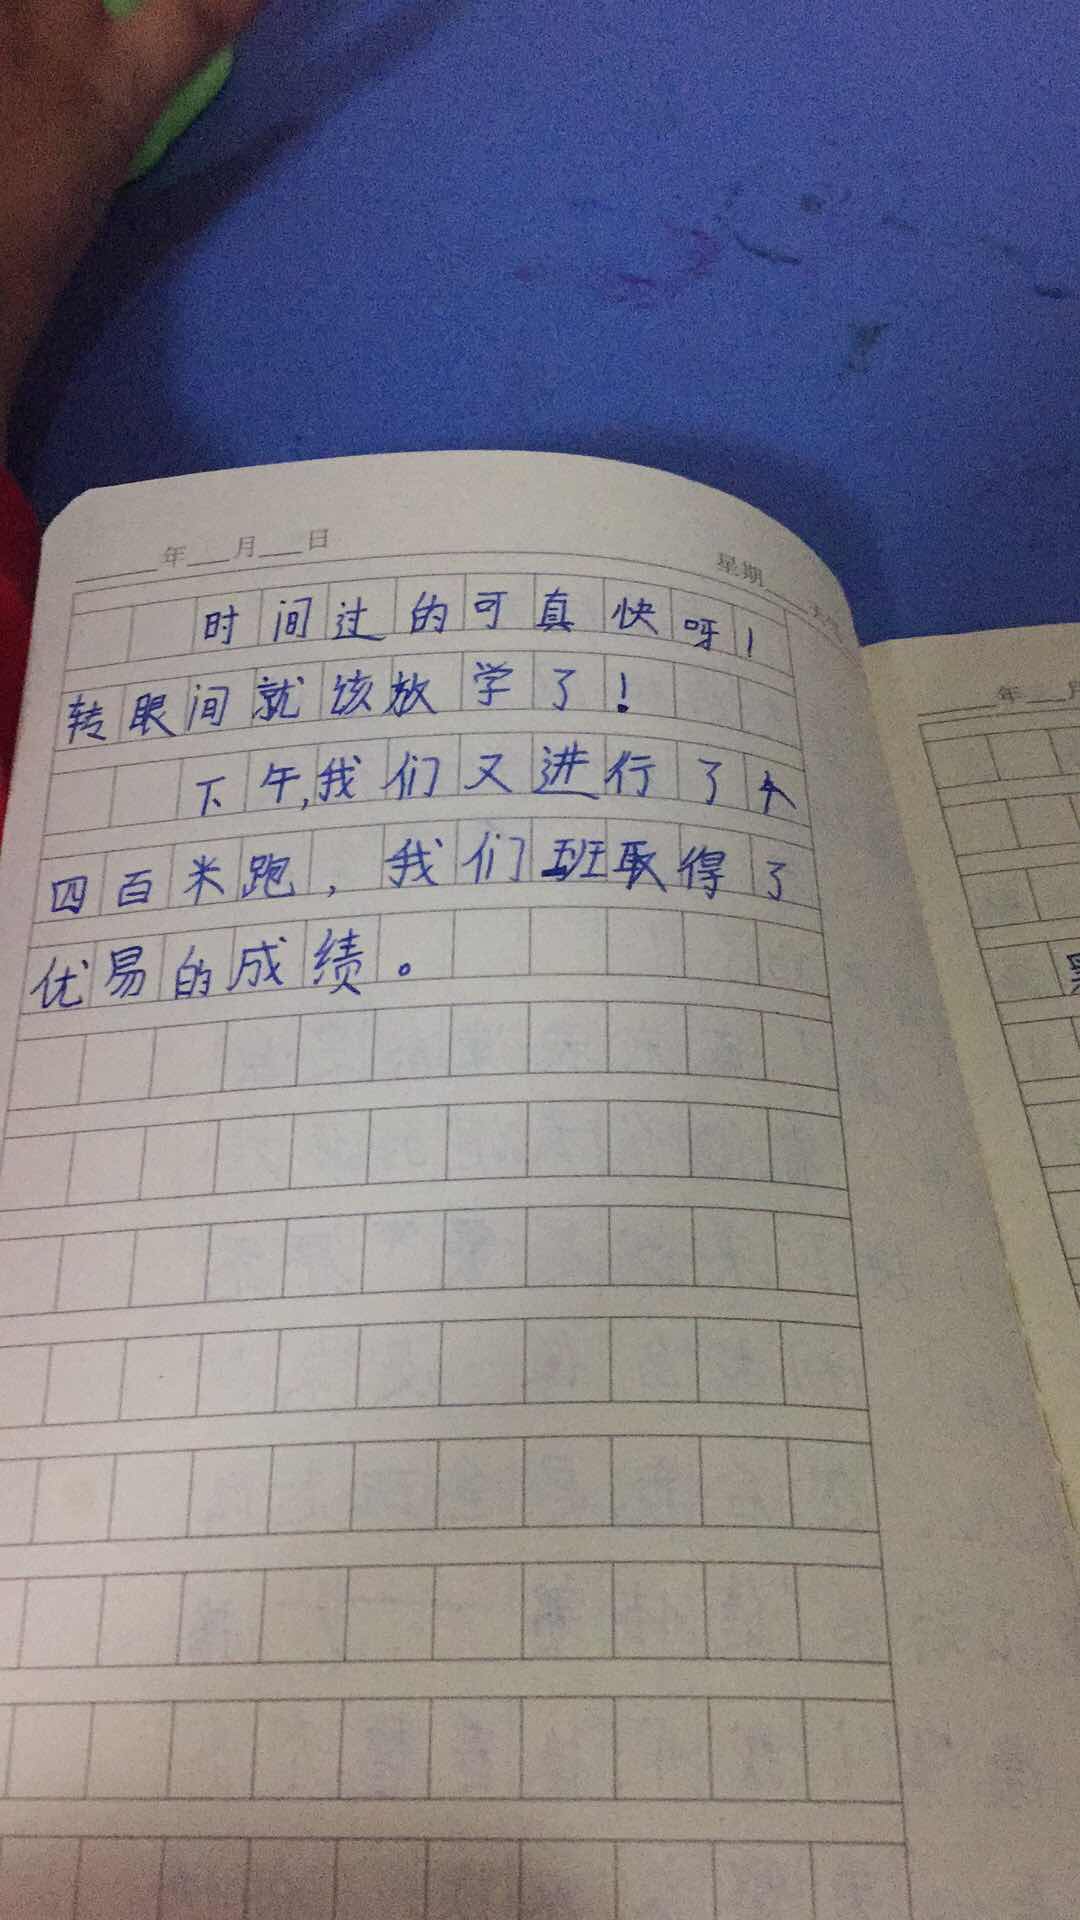 年 月 日 星期
时间过的可真快呀！
转眼间就该放学了！
下午,我们又进行了个
四百米跑，我们班取得了
优易的成绩。
年 月